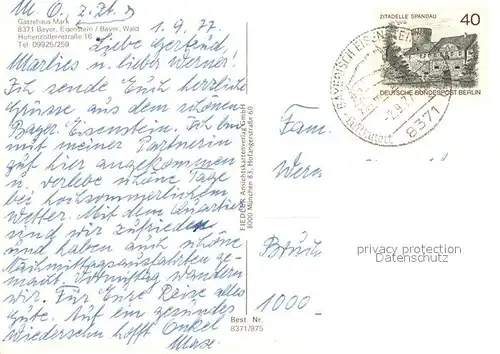 M. O., z. Zt. D
Gästehaus Mark
8371 Bayer. Eisenstein / Bayer. Wald
Hohenzollernstraße 16
Tel. 09925/259
1. 9. 77
Liebe Gertrud,
Marlies u. lieber Werner!
Ich sende Euch herzliche
Grüsse aus dem schönen
Bayer Eisenstein. Ich bin
mit meiner Partnerin
gut hier angekommen
u. verlebe schöne Tage
bei hochsommerlichem
Wetter. Mit dem Quartier
sind wir zufrieden
und haben auch schöne
Nachmittagsausfahrten ge-
macht. Vormittag wandern
wir. Für Eure Reise alles
Gute. Auf ein gesundes
Wiedersehn hofft Onkel
Max.
FIEDLER Ansichtskartenverlag GmbH
8000 München 83, Hofangerstraße 60
Best. Nr.
8371/875
ZITADELLE SPANDAU
40
DEUTSCHE BUNDESPOST BERLIN
-2.9.77
8371
Fam.
Wern
Brück
1000
privacy protection
Datenschutz